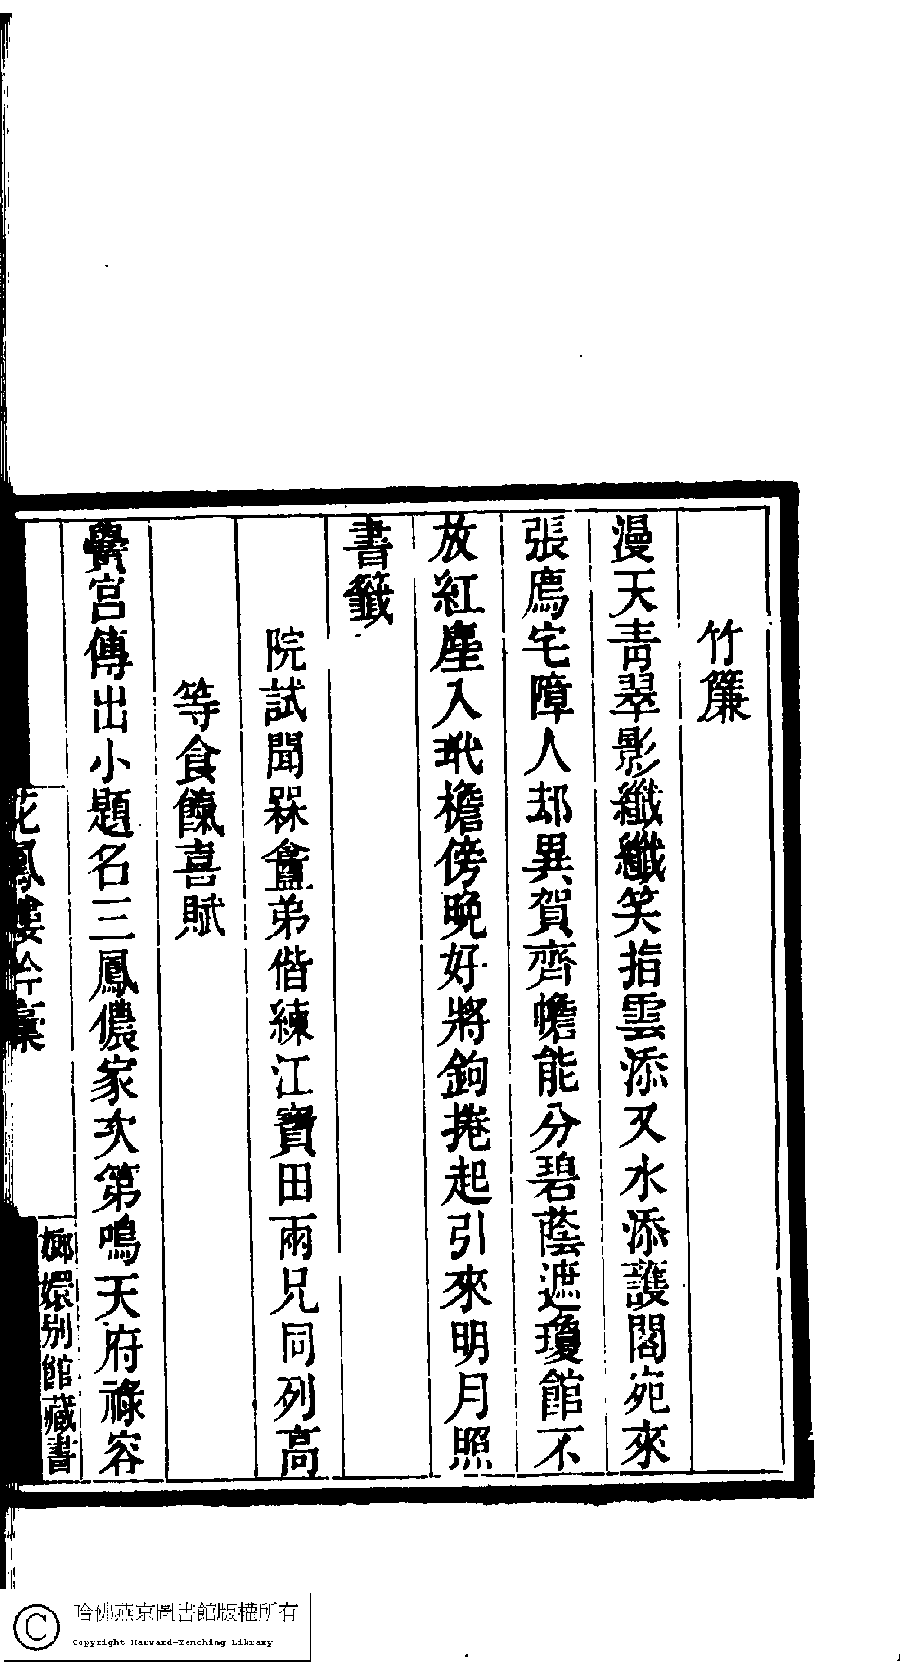 竹簾
漫天靑翠影纖纖笑指雲添又水添護閣宛來
張廌宅障人却異賀齊幨能分碧蔭遮瓊館不
放紅塵入玳檐傍晚好將鉤捲起引來明月照
書籤
院試聞槑盦弟偕練江寶田兩兄同列高
等食餼喜賦
黌宮傳出小題名三鳳儂家次第鳴天府祿容
花鳳樓吟稾
嫏嬛别館藏書
哈佛燕京圖書館版權所有
Copyright Harvard-Yenching Library